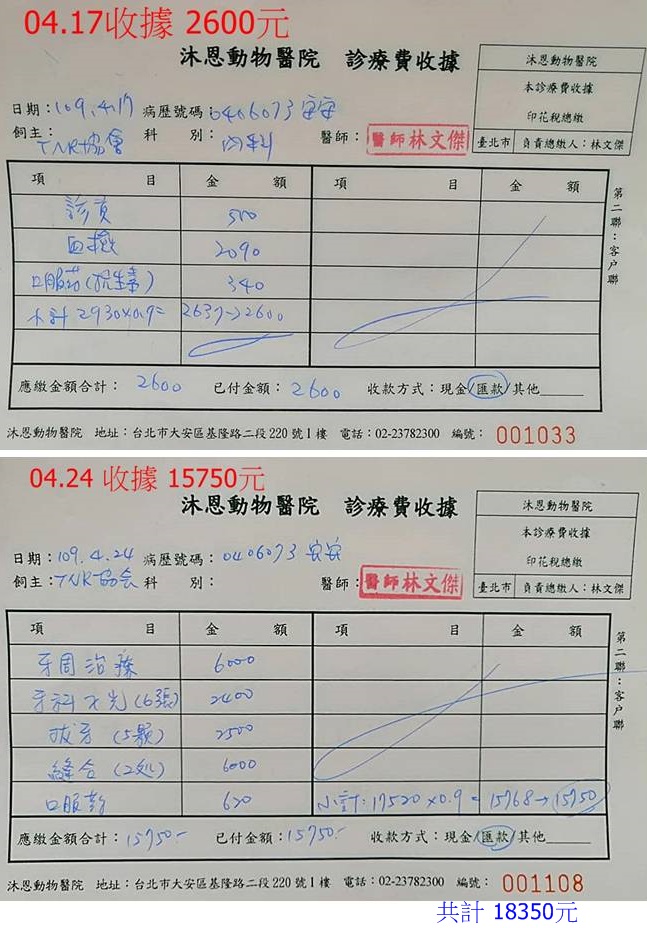 04.17收據 2600元
沐恩動物醫院 診療費收據
沐恩動物醫院
本診療費收據
印花稅總繳
臺北市 負責總繳人：林文傑
日期：109.4.17 病歷號碼：0406073 安安
飼主：TNR協會 科 別：內科 醫師：醫師林文傑
項 目 金 額 項 目 金 額
診資 500
血檢 2090
口服葯(抗生素) 340
小計 2930x0.9= 2637→2600
應繳金額合計：2600 已付金額：2600 收款方式：現金/匯款/其他
第二聯：客戶聯
沐恩動物醫院 地址：台北市大安區基隆路二段220號1樓 電話：02-23782300 編號：001033
04.24 收據 15750元
沐恩動物醫院 診療費收據
沐恩動物醫院
本診療費收據
印花稅總繳
臺北市 負責總繳人：林文傑
日期：109.4.24 病歷號碼：0406073 安安
飼主：TNR協会 科 別： 醫師：醫師林文傑
項 目 金 額 項 目 金 額
牙周治療 6000
牙科X光(6張) 2400
拔牙(5顆) 2500
縫合(2處) 6000
口服葯 620 小計：17520x0.9=15768→15750
應繳金額合計：15750.- 已付金額：15750.- 收款方式：現金/匯款/其他
第二聯：客戶聯
沐恩動物醫院 地址：台北市大安區基隆路二段220號1樓 電話：02-23782300 編號：001108
共計 18350元